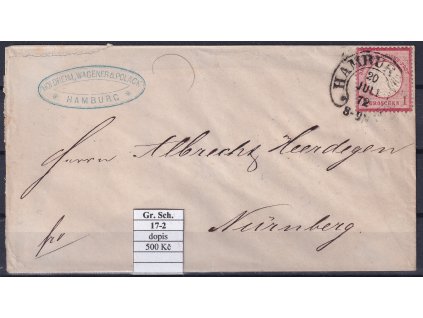 GOLDHEIM, WAGENER & POLACK
HAMBURG
HAMBURG
20
JULI
72
GROSCHEN
1
Herrn Albrecht Heerdegen
Nürnberg.
fro
Gr. Sch.
17-2
dopis
500 Kč